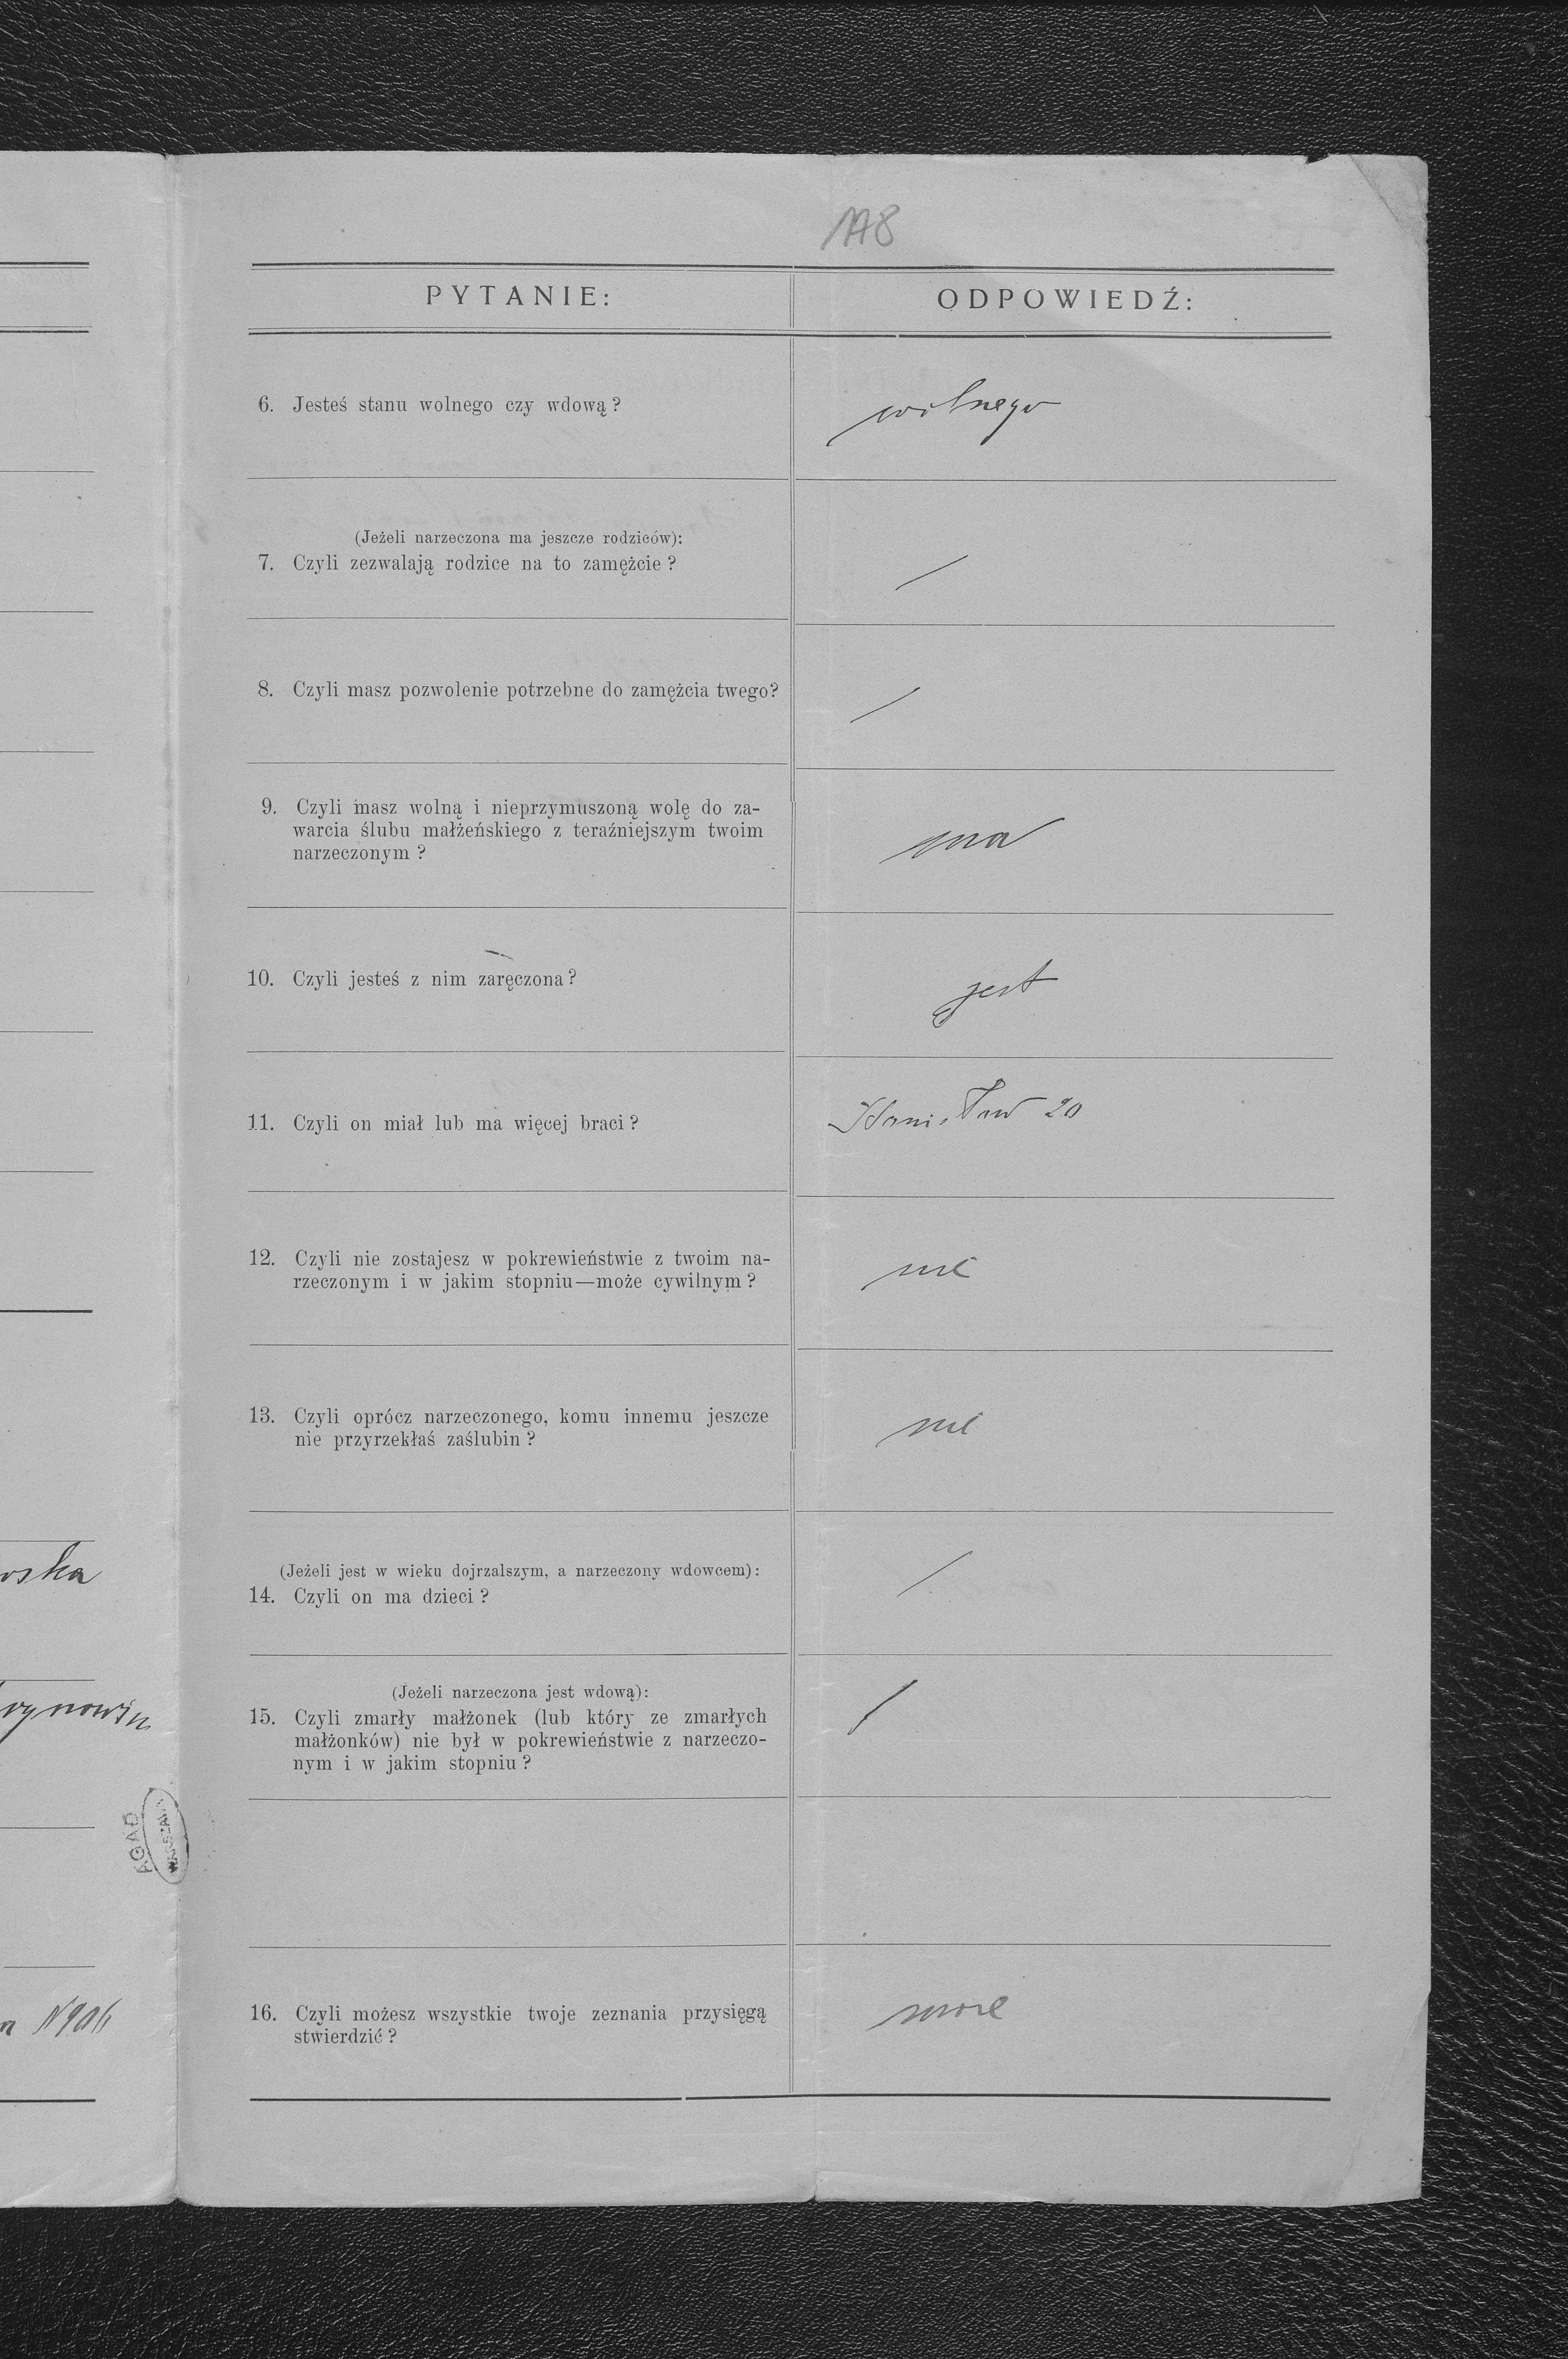 178
PYTANIE: ODPOWIEDŹ:
6. Jesteś stanu wolnego czy wdową? wolnego
(Jeżeli narzeczona ma jeszcze rodziców):
7. Czyli zezwalają rodzice na to zamężcie? /
8. Czyli masz pozwolenie potrzebne do zamężcia twego? /
9. Czyli masz wolną i nieprzymuszoną wolę do za-
warcia ślubu małżeńskiego z teraźniejszym twoim
narzeczonym? ma
10. Czyli jesteś z nim zaręczona? jest
11. Czyli on miał lub ma więcej braci? Stanisław 20
12. Czyli nie zostajesz w pokrewieństwie z twoim na-
rzeczonym i w jakim stopniu—może cywilnym? nie
13. Czyli oprócz narzeczonego, komu innemu jeszcze
nie przyrzekłaś zaślubin? nie
(Jeżeli jest w wieku dojrzalszym, a narzeczony wdowcem):
14. Czyli on ma dzieci? /
(Jeżeli narzeczona jest wdową):
15. Czyli zmarły małżonek (lub który ze zmarłych
małżonków) nie był w pokrewieństwie z narzeczo-
nym i w jakim stopniu? /
16. Czyli możesz wszystkie twoje zeznania przysięgą
stwierdzić? może
AGAD
WARSZAWA